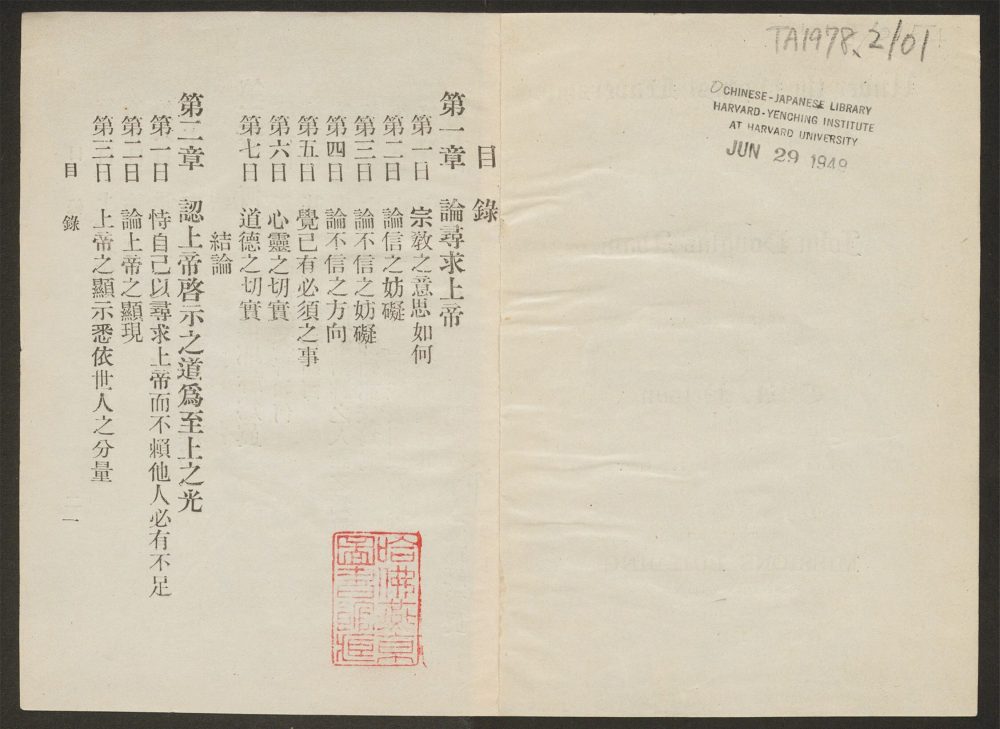 TA1978.2/01
CHINESE-JAPANESE LIBRARY
HARVARD-YENCHING INSTITUTE
AT HARVARD UNIVERSITY
JUN 29 1948
目錄
第一章 論尋求上帝
第一日 宗教之意思如何
第二日 論信之妨礙
第三日 論不信之妨礙
第四日 論不信之方向
第五日 覺己有必須之事
第六日 心靈之切實
第七日 道德之切實
結論
第二章 認上帝啓示之道爲至上之光
第一日 恃自己以尋求上帝而不賴他人必有不足
第二日 論上帝之顯現
第三日 上帝之顯示悉依世人之分量
目錄 一
哈佛燕京
圖書館